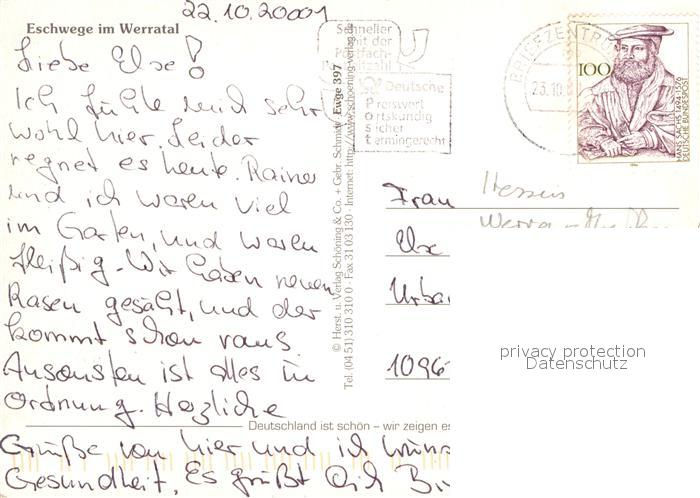 22.10.20001
Eschwege im Werratal
Liebe Else!
Ich fühle mich sehr
wohl hier. Leider
regnet es heute. Rainer
und ich waren viel
im Garten, und waren
fleißig. Wir haben neuen
Rasen gesäht, und der
kommt schon raus.
Ansonsten ist alles in
Ordnung. Herzliche
Grüße von hier und ich
Gesundheit. Es grüßt Dich
Deutschland ist schön – wir zeigen es
© Herst. u. Verlag Schöning & Co. + Gebr. Schmidt / Ewge 397
Tel. (04 51) 310 310 0 · Fax 31 03 130 · Internet: http://www.schoening-verlag.de
Schneller
mit der
Postfach-
Deutsche
Preiswert
Ortskundig
sicher
termingerecht
BRIEFZENTRUM
23.10
100
HANS SACHS 1494-1576
DEUTSCHE BUNDESPOST
Hessen
Werra
Frau
Else
Urba
1096
privacy protection
Datenschutz